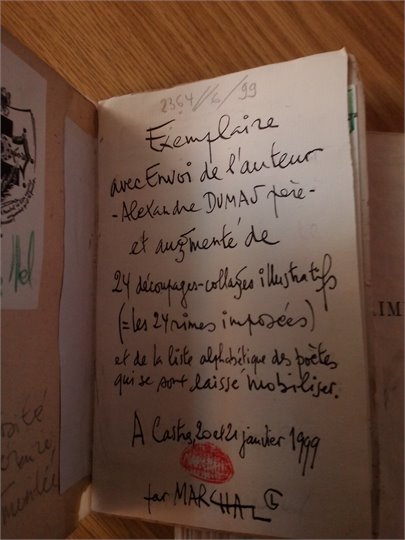 2364//6/99
Exemplaire
avec Envoi de l'auteur
-Alexandre DUMAS père-
et augmenté de
24 découpages-collages illustratifs
(=les 24 rimes imposées)
et de la liste alphabétique des poètes
qui se sont laissé mobiliser.
A Castres, 20 et 21 janvier 1999
par MARCHAL
RIM